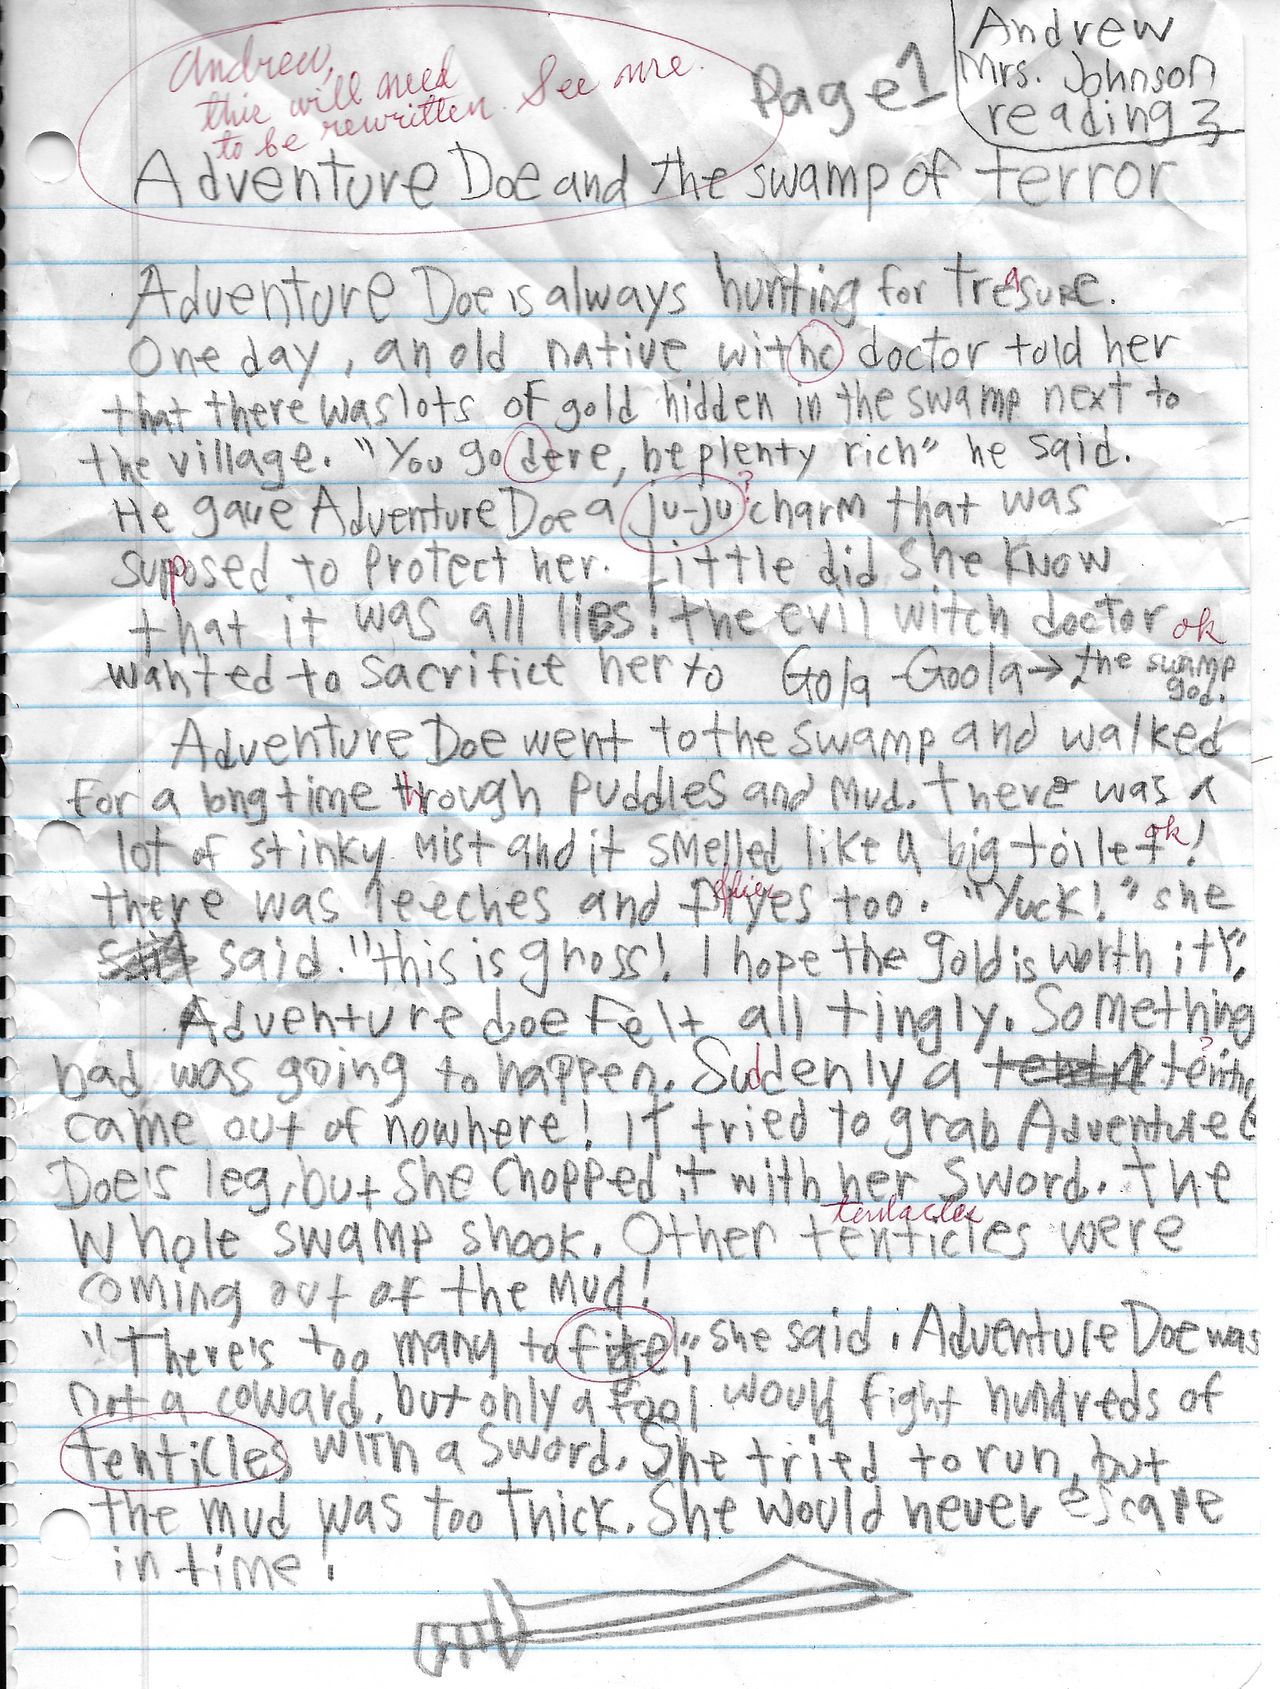 Andrew
Mrs. Johnson
reading 3
Page 1
Andrew,
this will need
to be rewritten. See me.
Adventure Doe and the swamp of terror
Adventure Doe is always hunting for treasure.
One day, an old native withc doctor told her
that there was lots of gold hidden in the swamp next to
the village. "You go dere, be plenty rich" he said.
He gave Adventure Doe a ju-ju ? charm that was
supposed to protect her. Little did she know
that it was all lies! the evil witch doctor ok
wanted to sacrifice her to Gola-Goola → the swamp
god.
Adventure Doe went to the swamp and walked
for a long time through puddles and mud. there was a
lot of stinky mist and it smelled like a big toilet ok!
there was leeches and flyes flies too. "Yuck!" she
said. "this is gross! I hope the gold is worth it!"
Adventure doe felt all tingly. Something
bad was going to happen. Suddenly a ?
came out of nowhere! it tried to grab Adventure
Doe's leg, but she chopped it with her sword. the
tentacles
whole swamp shook. Other tenticles were
coming out of the mud!
"There's too many to fite!" she said. Adventure Doe was
not a coward, but only a fool would fight hundreds of
tenticles with a sword. She tried to run, but
the mud was too thick. She would never escape
in time!